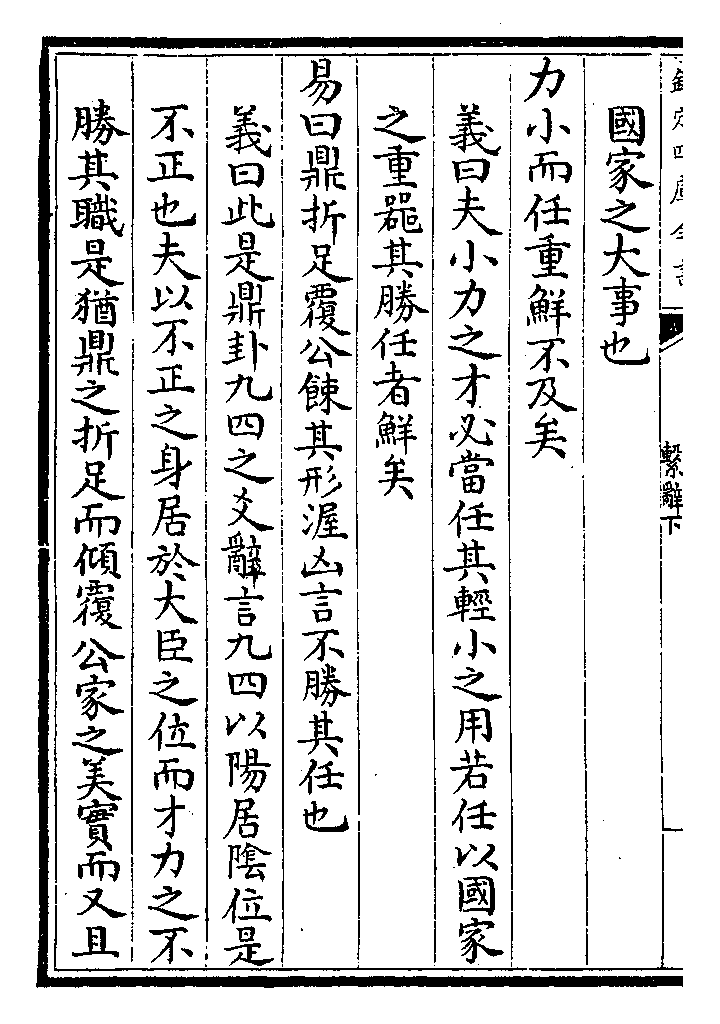 欽定四庫全書
繫辭下
國家之大事也
力小而任重鮮不及矣
義曰夫小力之才必當任其輕小之用若任以國家
之重器其勝任者鮮矣
易曰鼎折足覆公餗其形渥凶言不勝其任也
義曰此是鼎卦九四之爻辭言九四以陽居陰位是
不正也夫以不正之身居於大臣之位而才力之不
勝其職是猶鼎之折足而傾覆公家之美實而又且